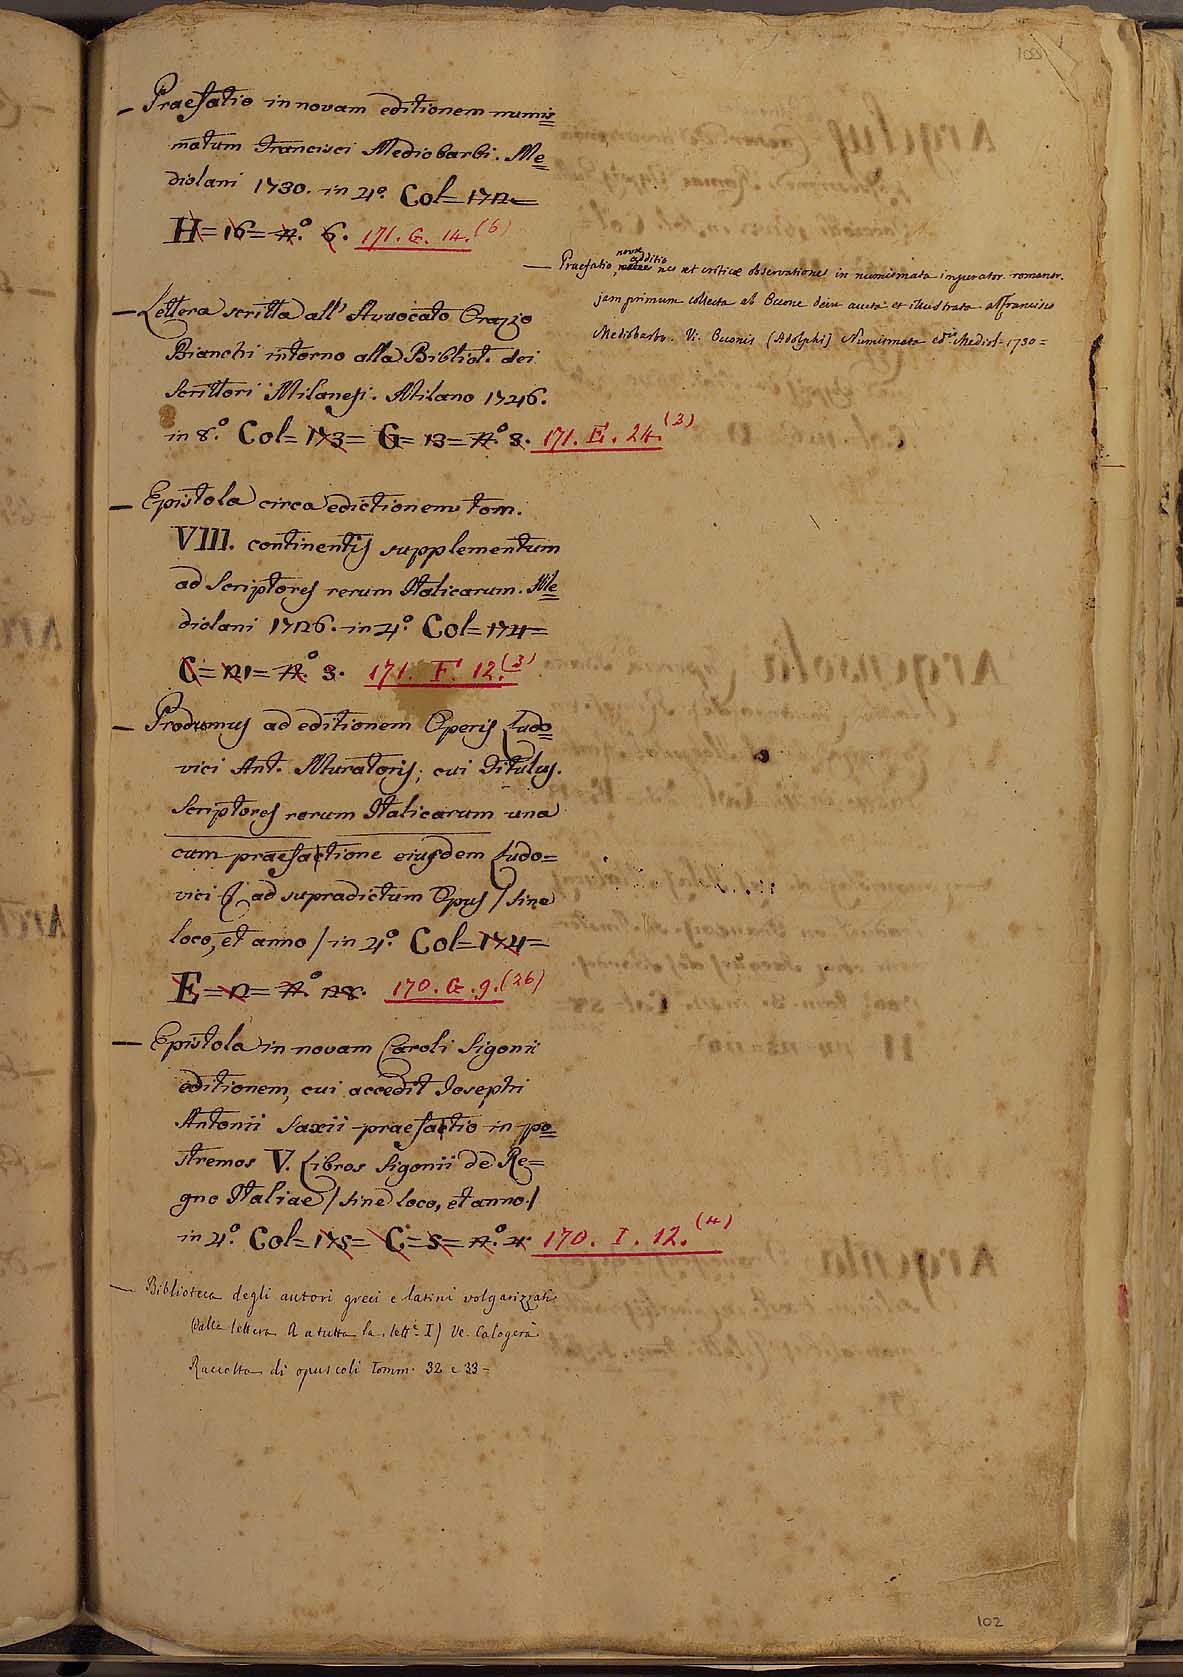 100
— Praefatio in novam editionem numis=
matum Francisci Mediobarbi. Me=
diolani 1730. in 4º. Col= 172=
H= 16= nº. 6. 171. G. 14. (6)
— Praefatio, novae additiones et criticæ observationes in numismata imperator. romanor.
jam primum collecta ab Occone dein aucta et illustrata a Francisco
Mediobarbo. Vi. Occonis (Adolphi) Numismata ed. Mediol. 1730=
— Lettera scritta all' Avvocato Orazio
Bianchi intorno alla Bibliot. dei
Scrittori Milanesi. Milano 1746.
in 8.º Col= 173= G= 13= nº 3. 171. E. 24. (3)
— Epistola circa edictionem tom.
VIII. continentis supplementum
ad Scriptores rerum Italicarum. Me=
diolani 1726. in 4º. Col= 174=
C= 21= nº. 3. 171. F. 12. (3)
— Prodromus ad editionem Operis Ludo=
vici Ant. Muratoris; cui Titulus.
Scriptores rerum Italicarum una
cum praefactione eiusdem Ludo=
vici ad supradictum Opus / sine
loco, et anno / in 4º. Col= 174=
E= 2= nº. 28. 170. G. 9. (26)
— Epistola in novam Caroli Sigonii
editionem, cui accedit Iosephi
Antonii Saxii praefactio in po=
stremos V. Libros Sigonii de Re=
gno Italiae / sine loco, et anno. /
in 4º. Col= 175= C= 5= nº 4. 170. I. 12. (4)
— Biblioteca degli autori greci e latini volgarizzati
(dalla lettera A a tutta la lett. I) Ve. Calogerà
Raccolta di opuscoli Tomm. 32 e 33=
102